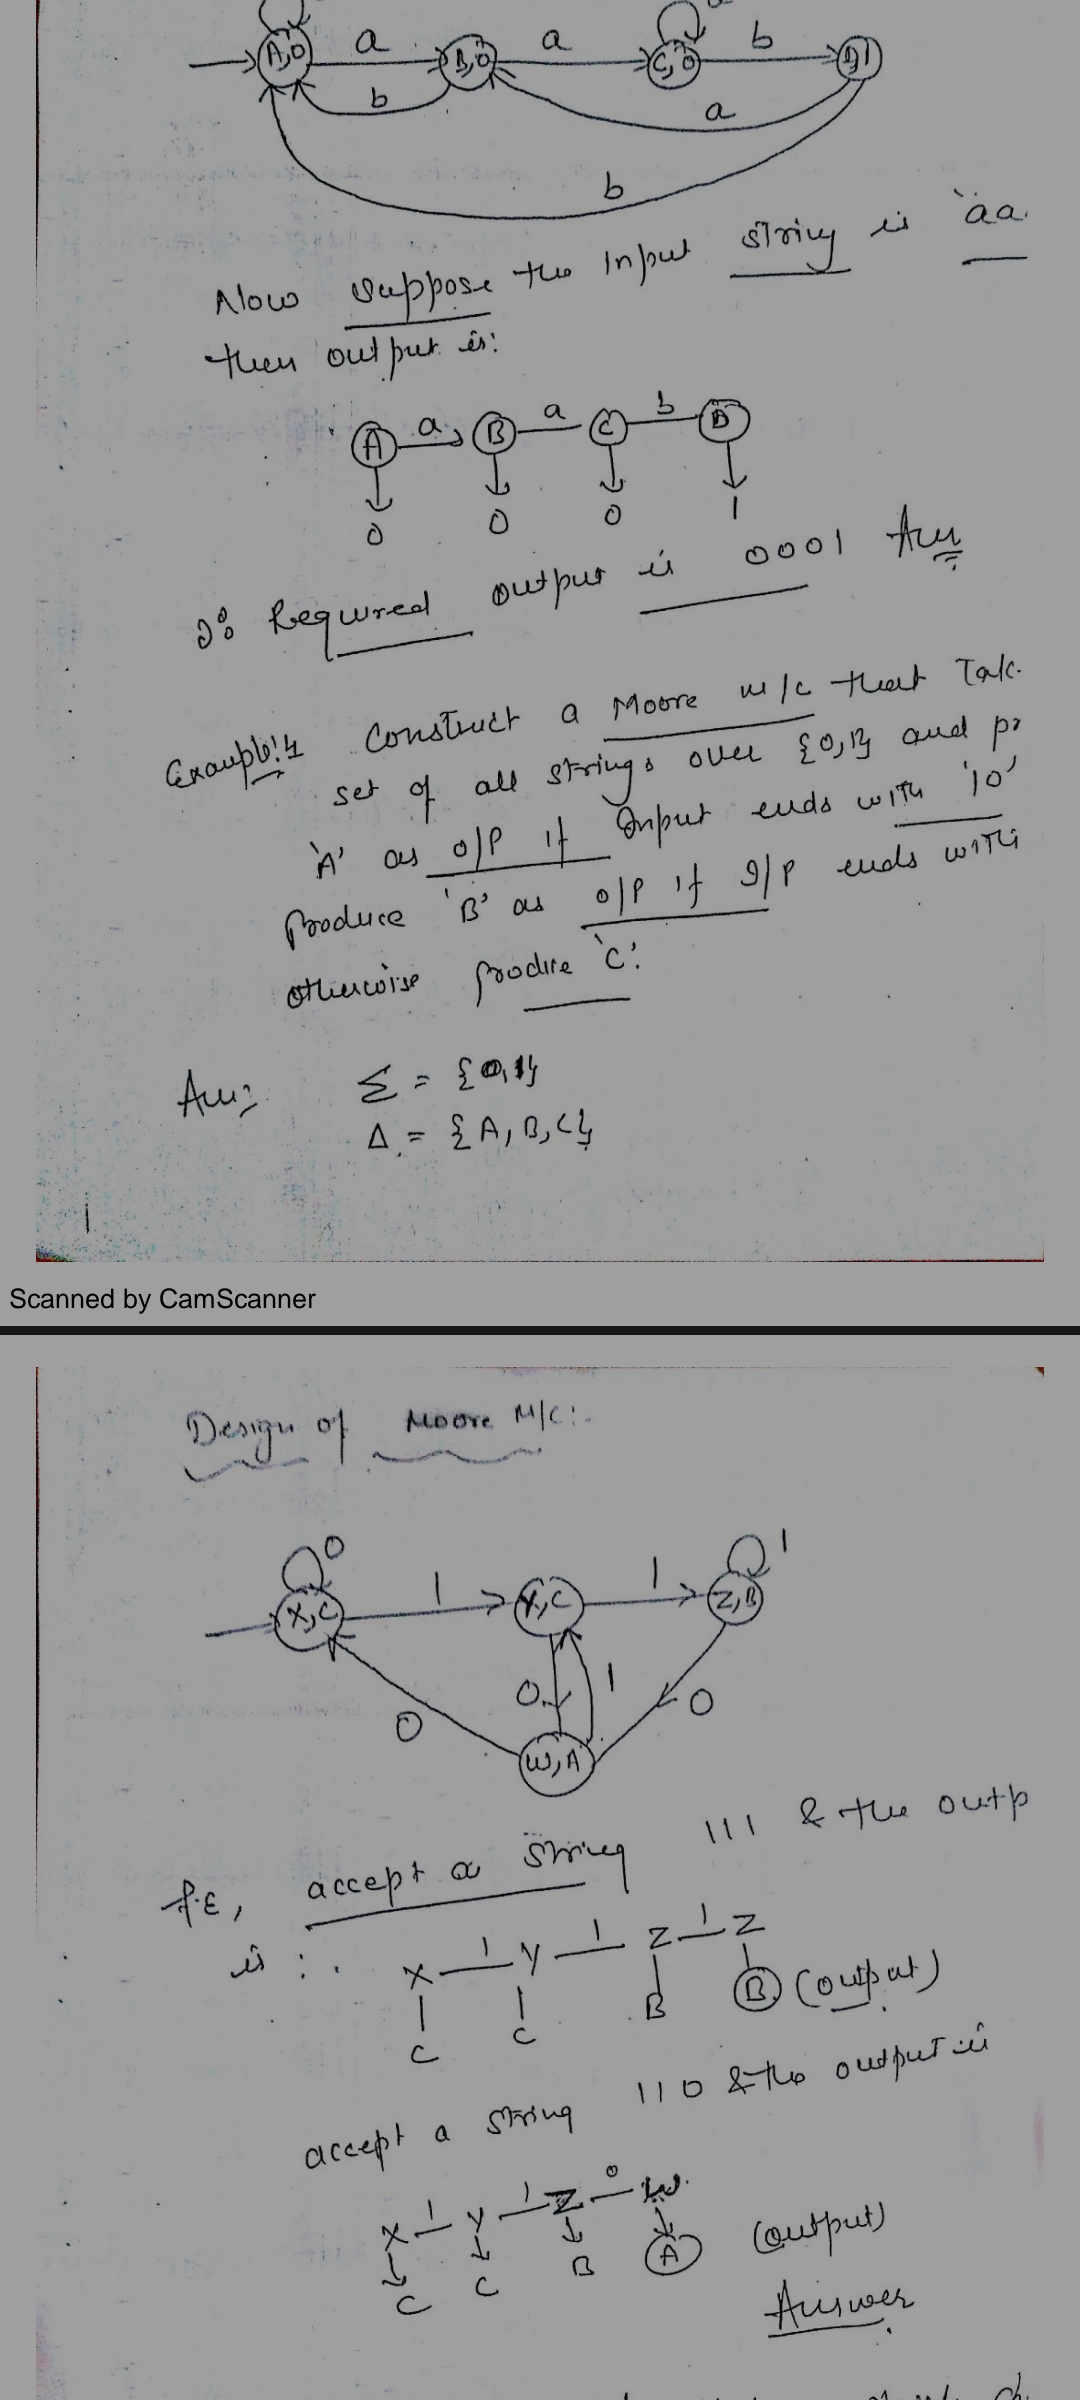 A,0 a B,0 a C,0 b D,1
b
a
b
Now suppose the Input string is 'aa
then output is:
A a B a C b D
0 0 0 1
Required output is 0001 Ans
Example:4 Construct a Moore m/c that Tak
set of all strings over {0,1} and pr
'A' as O/P if Input ends with '10'
Produce 'B' as O/P if I/P ends with
otherwise produce 'C'.
Ans: Σ = {0,1}
Δ = {A, B, C}
Scanned by CamScanner
Design of Moore M/C:-
0 1
X,C 1 Y,C 1 Z,B
0 1 0
0
W,A
accept a string 111 & the outp
is :
X 1 Y 1 Z 1 Z
C C B B (output)
accept a string 110 & the output is
X 1 Y 1 Z 0 W
C C B A (output)
Answer